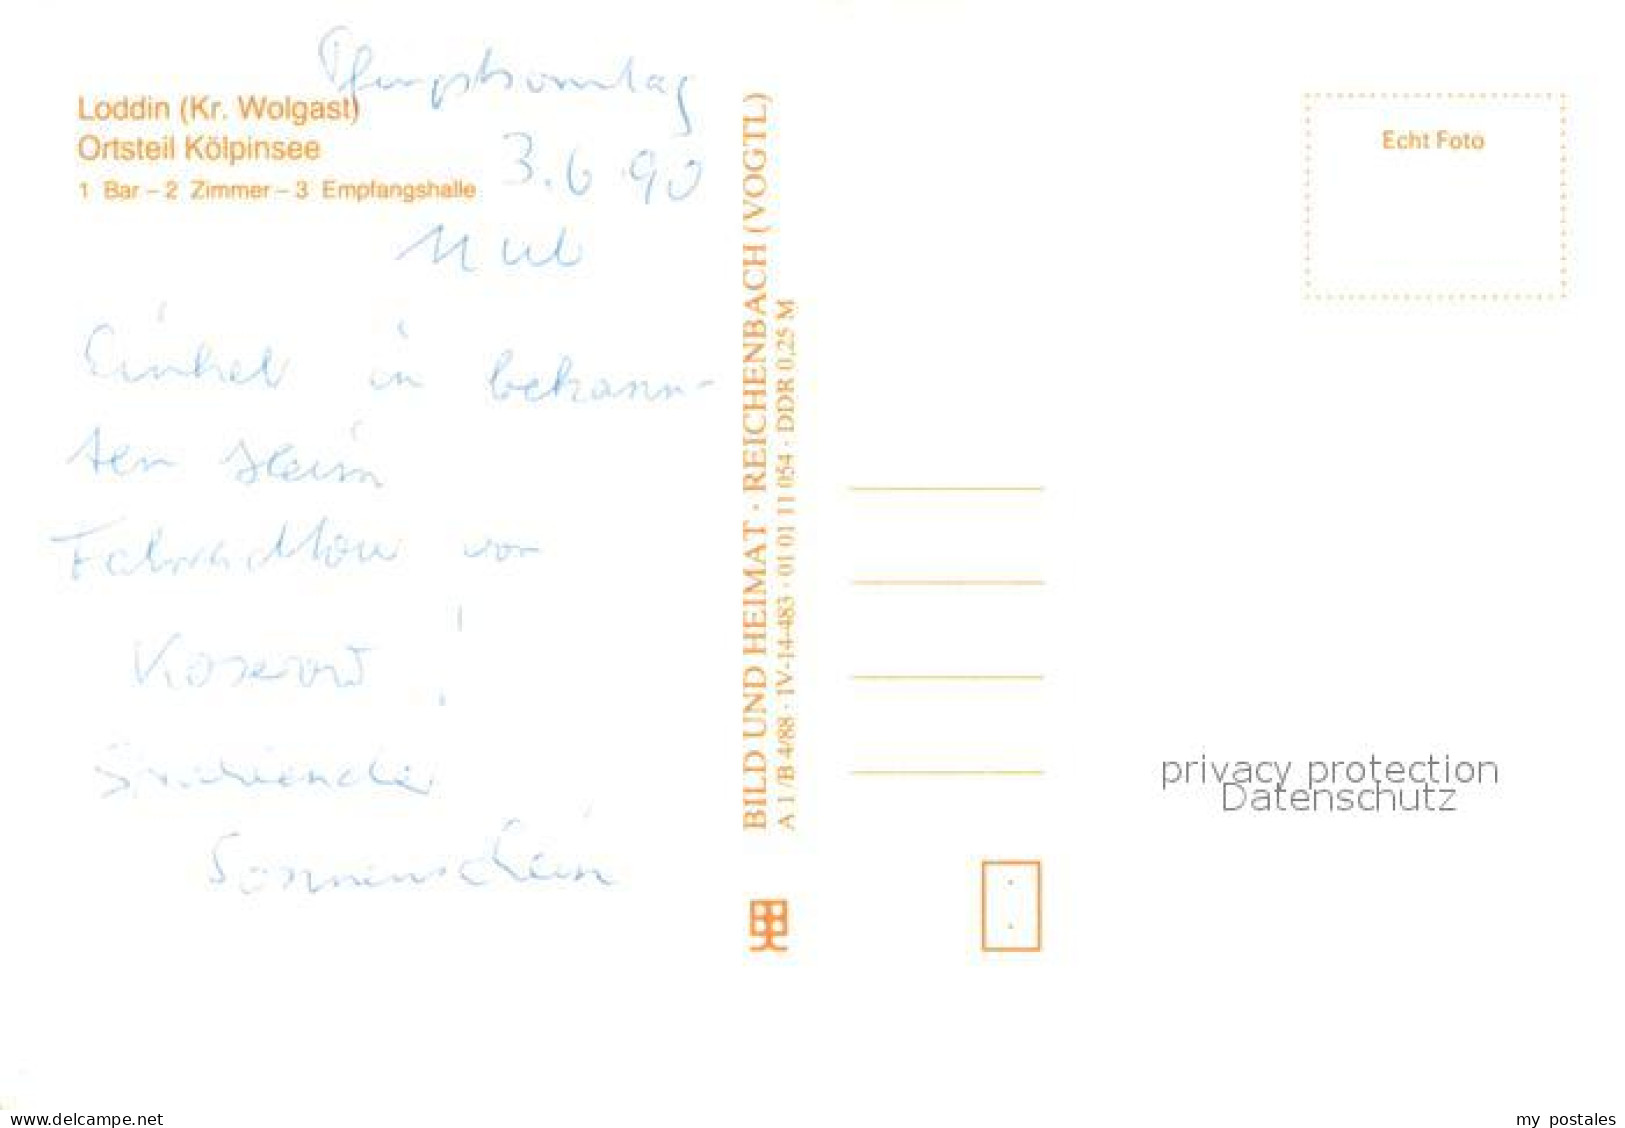 Pfingstsonntag
Loddin (Kr. Wolgast)
Ortsteil Kölpinsee
3.6.90
1 Bar – 2 Zimmer – 3 Empfangshalle
Einkehr in bekann-
ten Heim
Fahrradtour von
Koserow!
Strahlender
Sonnenschein
BILD UND HEIMAT · REICHENBACH (VOGTL)
A 1/B 4/88 · IV-14-483 · 01 01 11 054 · DDR 0,25 M
Echt Foto
privacy protection
Datenschutz
delcampe.net
my_postales